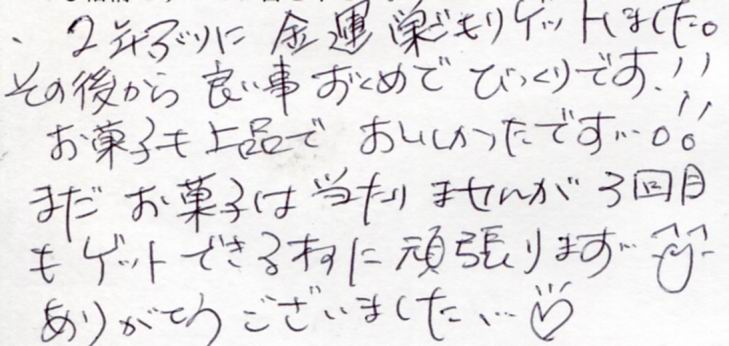 ・2年ぶりに金運巣ごもりゲットしました。
その後から良い事おくめでびっくりです!!
お菓子も上品でおいしかったです…。!!
まだお菓子は当たりませんが3回目
もゲットできる様に頑張ります…
ありがとうございました…♡